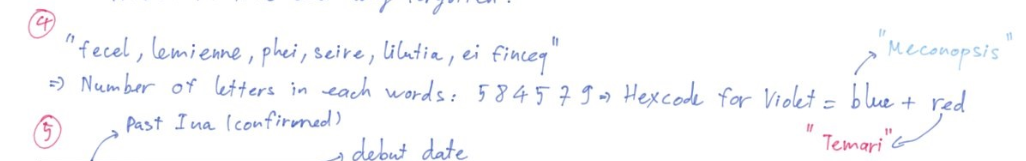 ④
"fecel, lemienne, phei, seire, lilutia, ei finceq"
"Meconopsis"
=> Number of letters in each words: 584579 => Hexcode for Violet = blue + red
"Temari"
⑤
Past Ina (confirmed)
debut date